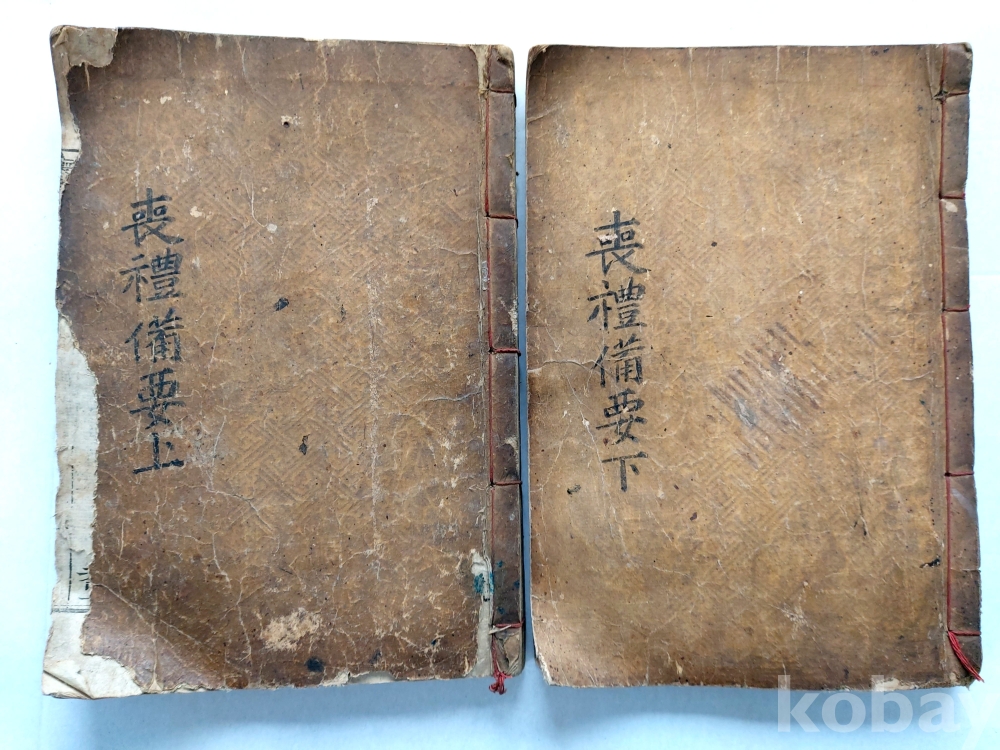 喪禮備要上
喪禮備要下
kobay